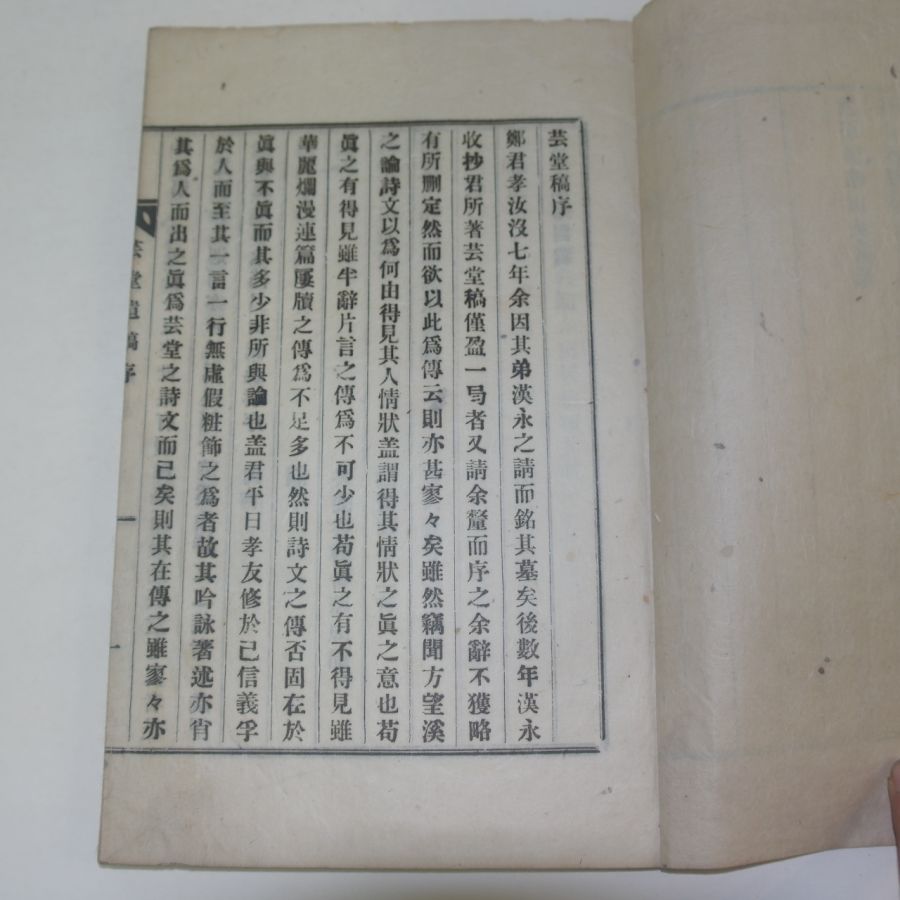 芸堂稿序
鄭君孝汝沒七年余因其弟漢永之請而銘其墓矣後數年漢永
收抄君所著芸堂稿僅盈一局者又請余釐而序之余辭不獲略
有所删定然而欲以此爲傳云則亦甚寥々矣雖然竊聞方望溪
之論詩文以爲何由得見其人情狀盖謂得其情狀之眞之意也苟
眞之有得見雖半辭片言之傳爲不可少也苟眞之有不得見雖
華麗爛漫連篇屢牘之傳爲不足多也然則詩文之傳否固在於
眞與不眞而其多少非所與論也盖君平日孝友修於己信義孚
於人而至其一言一行無虛假粧餙之爲者故其吟詠著述亦肖
其爲人而出之眞爲芸堂之詩文而已矣則其在傳之雖寥々亦
芸堂遺稿序
一